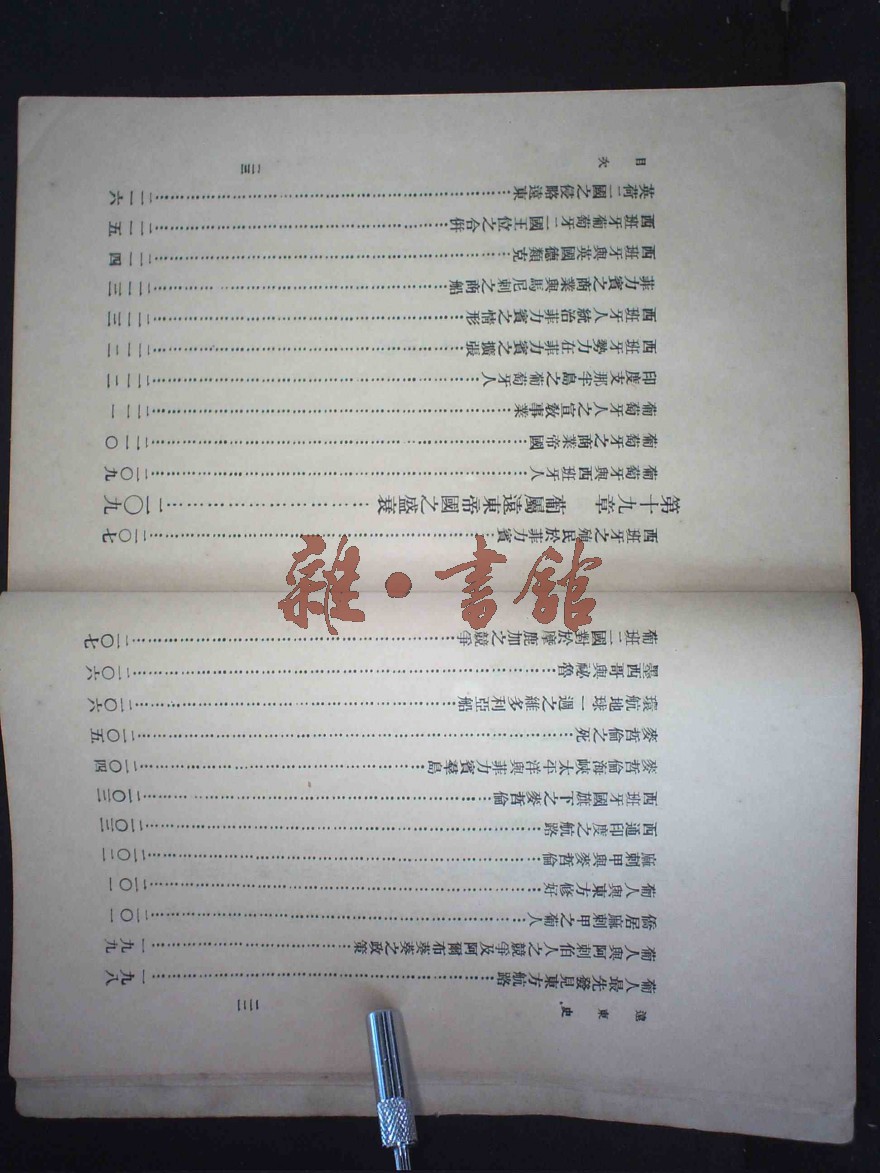 遠東史 二二
葡人最先發見東方航路……一九八
葡人與阿剌伯人之競爭及阿爾布葵葵之政策……一九九
僑居麻剌甲之葡人……二〇一
葡人與東方修好……二〇一
麻剌甲與麥哲倫……二〇二
西通印度之航路……二〇三
西班牙國旗下之麥哲倫……二〇三
麥哲倫海峽太平洋與菲力賓羣島……二〇四
麥哲倫之死……二〇五
環航地球一週之維多利亞船……二〇六
墨西哥與祕魯……二〇六
葡班二國對於摩鹿加之競爭……二〇七
西班牙之殖民於菲力賓……二〇七
第十九章 葡屬遠東帝國之盛衰……二〇九
葡萄牙與西班牙人……二〇九
葡萄牙之商業帝國……二一〇
葡萄牙人之宣敎事業……二一一
印度支那半島之葡萄牙人……二一二
西班牙勢力在菲力賓之擴張……二一二
西班牙人統治菲力賓之情形……二一三
菲力賓之商業與馬尼剌之商船……二一三
西班牙與英國德類克……二一四
西班牙葡萄牙二國王位之合併……二一五
英荷二國之侵略遠東……二一六
目次 二三
雜·書館